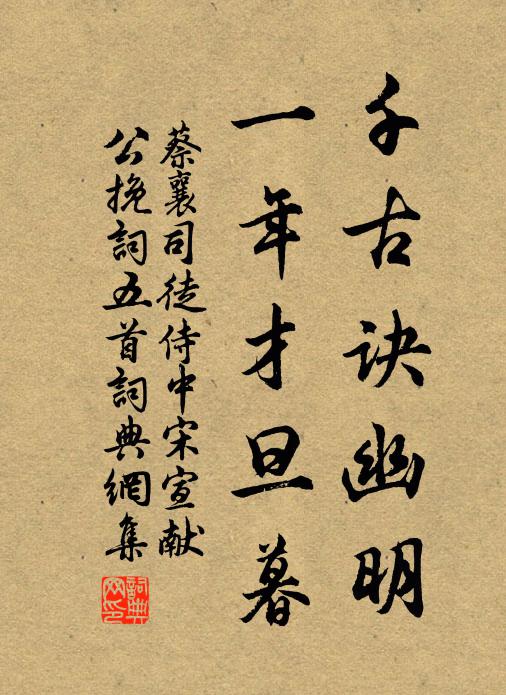 千古诀幽明
一年才旦暮
蔡襄司徒侍中宋宣献
公挽詞五首詞典網集
詞典网印